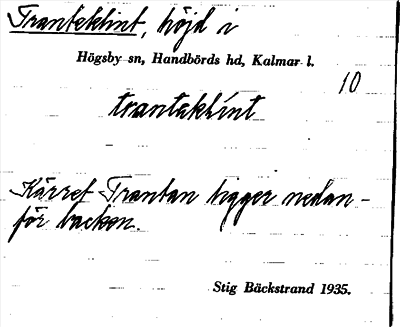 Tranteklint, höjd i
Högsby sn, Handbörds hd, Kalmar l.
10
trantəklint
Kärret Trantan ligger nedan-
för backen.
Stig Bäckstrand 1935.